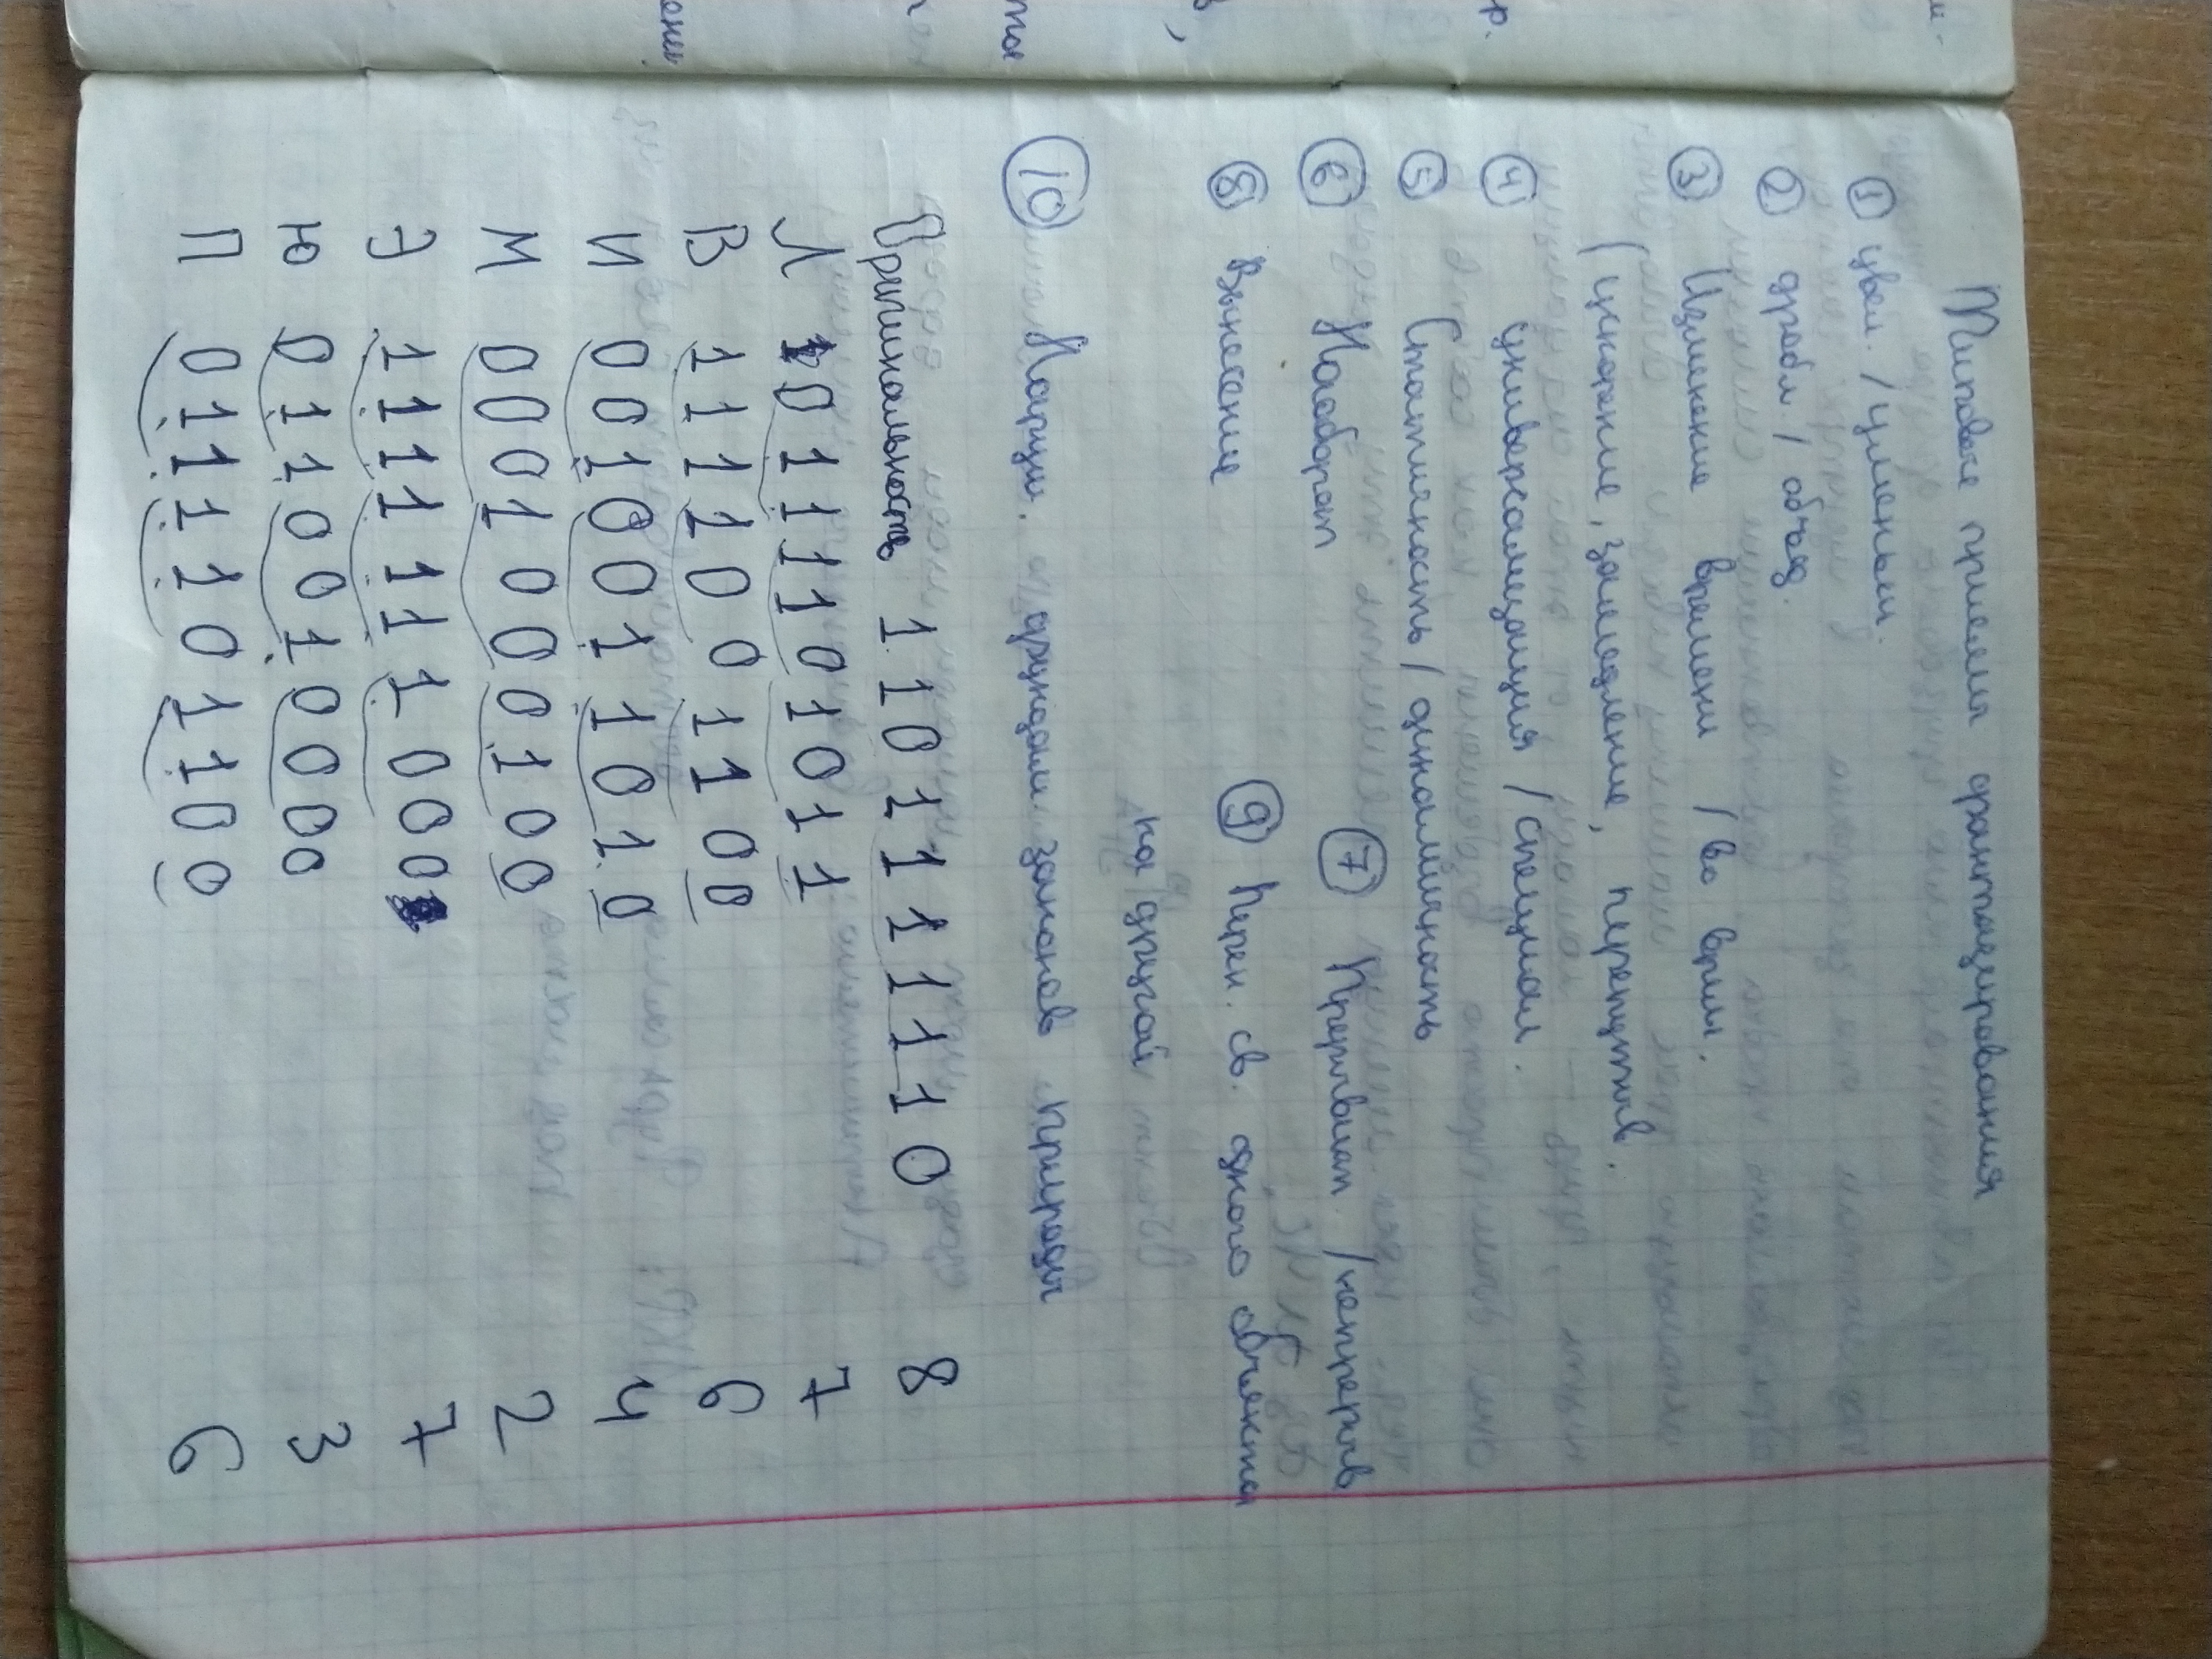 Типовые приемы фантазирования
① увел. / уменьш.
② дробл / объед.
③ Изменение времени / во врем.
(ускорение, замедление, перспектив.
④ универсализация / специал.
⑤ Статичность / динамичность
⑥ Наоборот ⑦ Прерыван. / непрерыв
⑧ Вынесение ⑨ Перен. св. одного объекта
на другой
⑩ Наруш. фундам. законов природы
Оригинальность 1 1 0 1 1 1 1 1 1 0 8
Л 0 1 1 1 1 0 1 0 1 1 7
В 1 1 1 1 0 0 1 1 0 0 6
И 0 0 1 0 0 1 1 0 1 0 4
М 0 0 0 1 0 0 0 1 0 0 2
Э 1 1 1 1 1 1 1 0 0 0 7
Ю 0 1 1 0 0 1 0 0 0 0 3
П 0 1 1 1 1 0 1 1 0 0 6